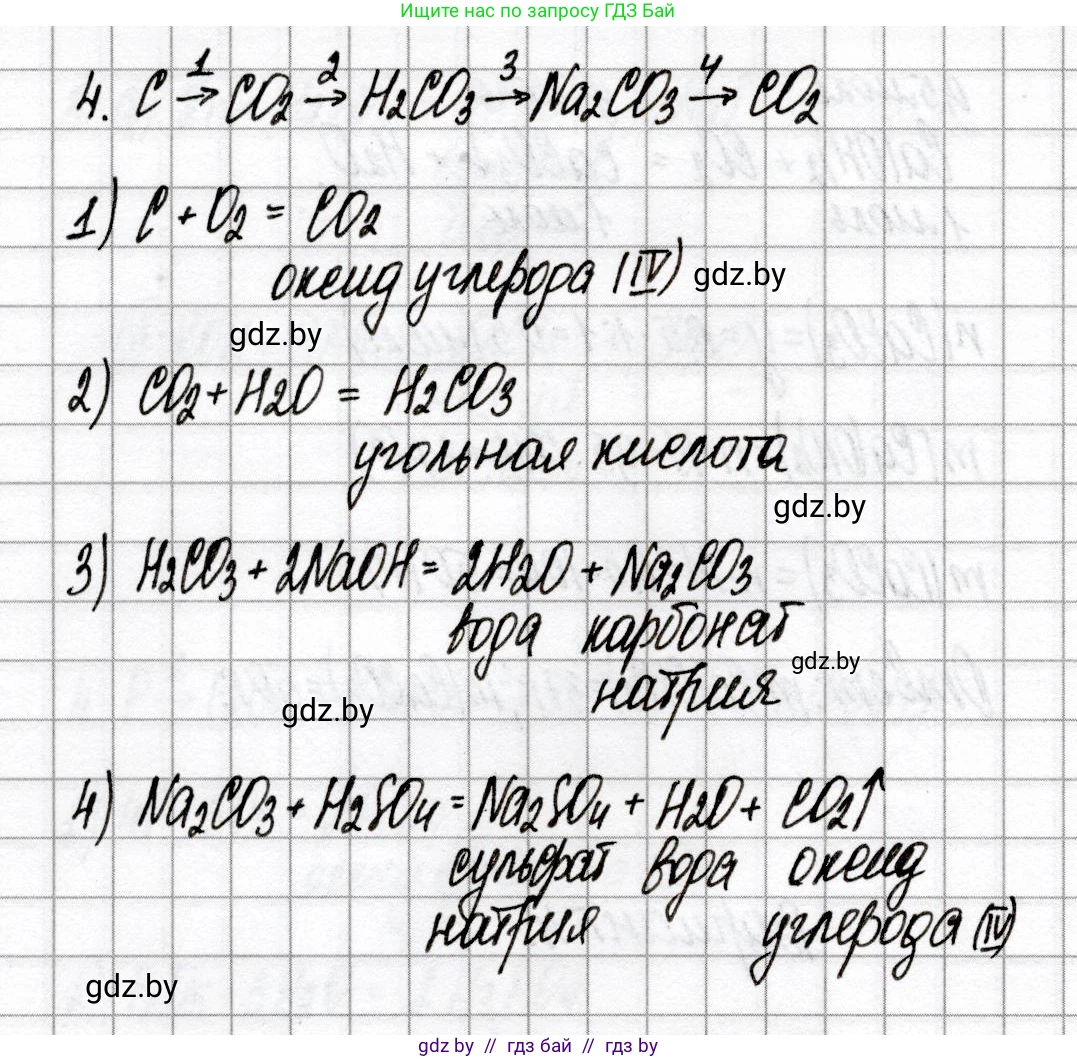 Ищите нас по запросу ГДЗ Бай
4. C →1 CO2 →2 H2CO3 →3 Na2CO3 →4 CO2
1) C + O2 = CO2
оксид углерода (IV)
gdz.by
gdz.by
2) CO2 + H2O = H2CO3
угольная кислота
gdz.by
3) H2CO3 + 2NaOH = 2H2O + Na2CO3
вода карбонат
gdz.by
натрия
gdz.by
4) Na2CO3 + H2SO4 = Na2SO4 + H2O + CO2↑
сульфат вода оксид
натрия углерода (IV)
gdz.by
gdz.by // гдз бай // гдз by